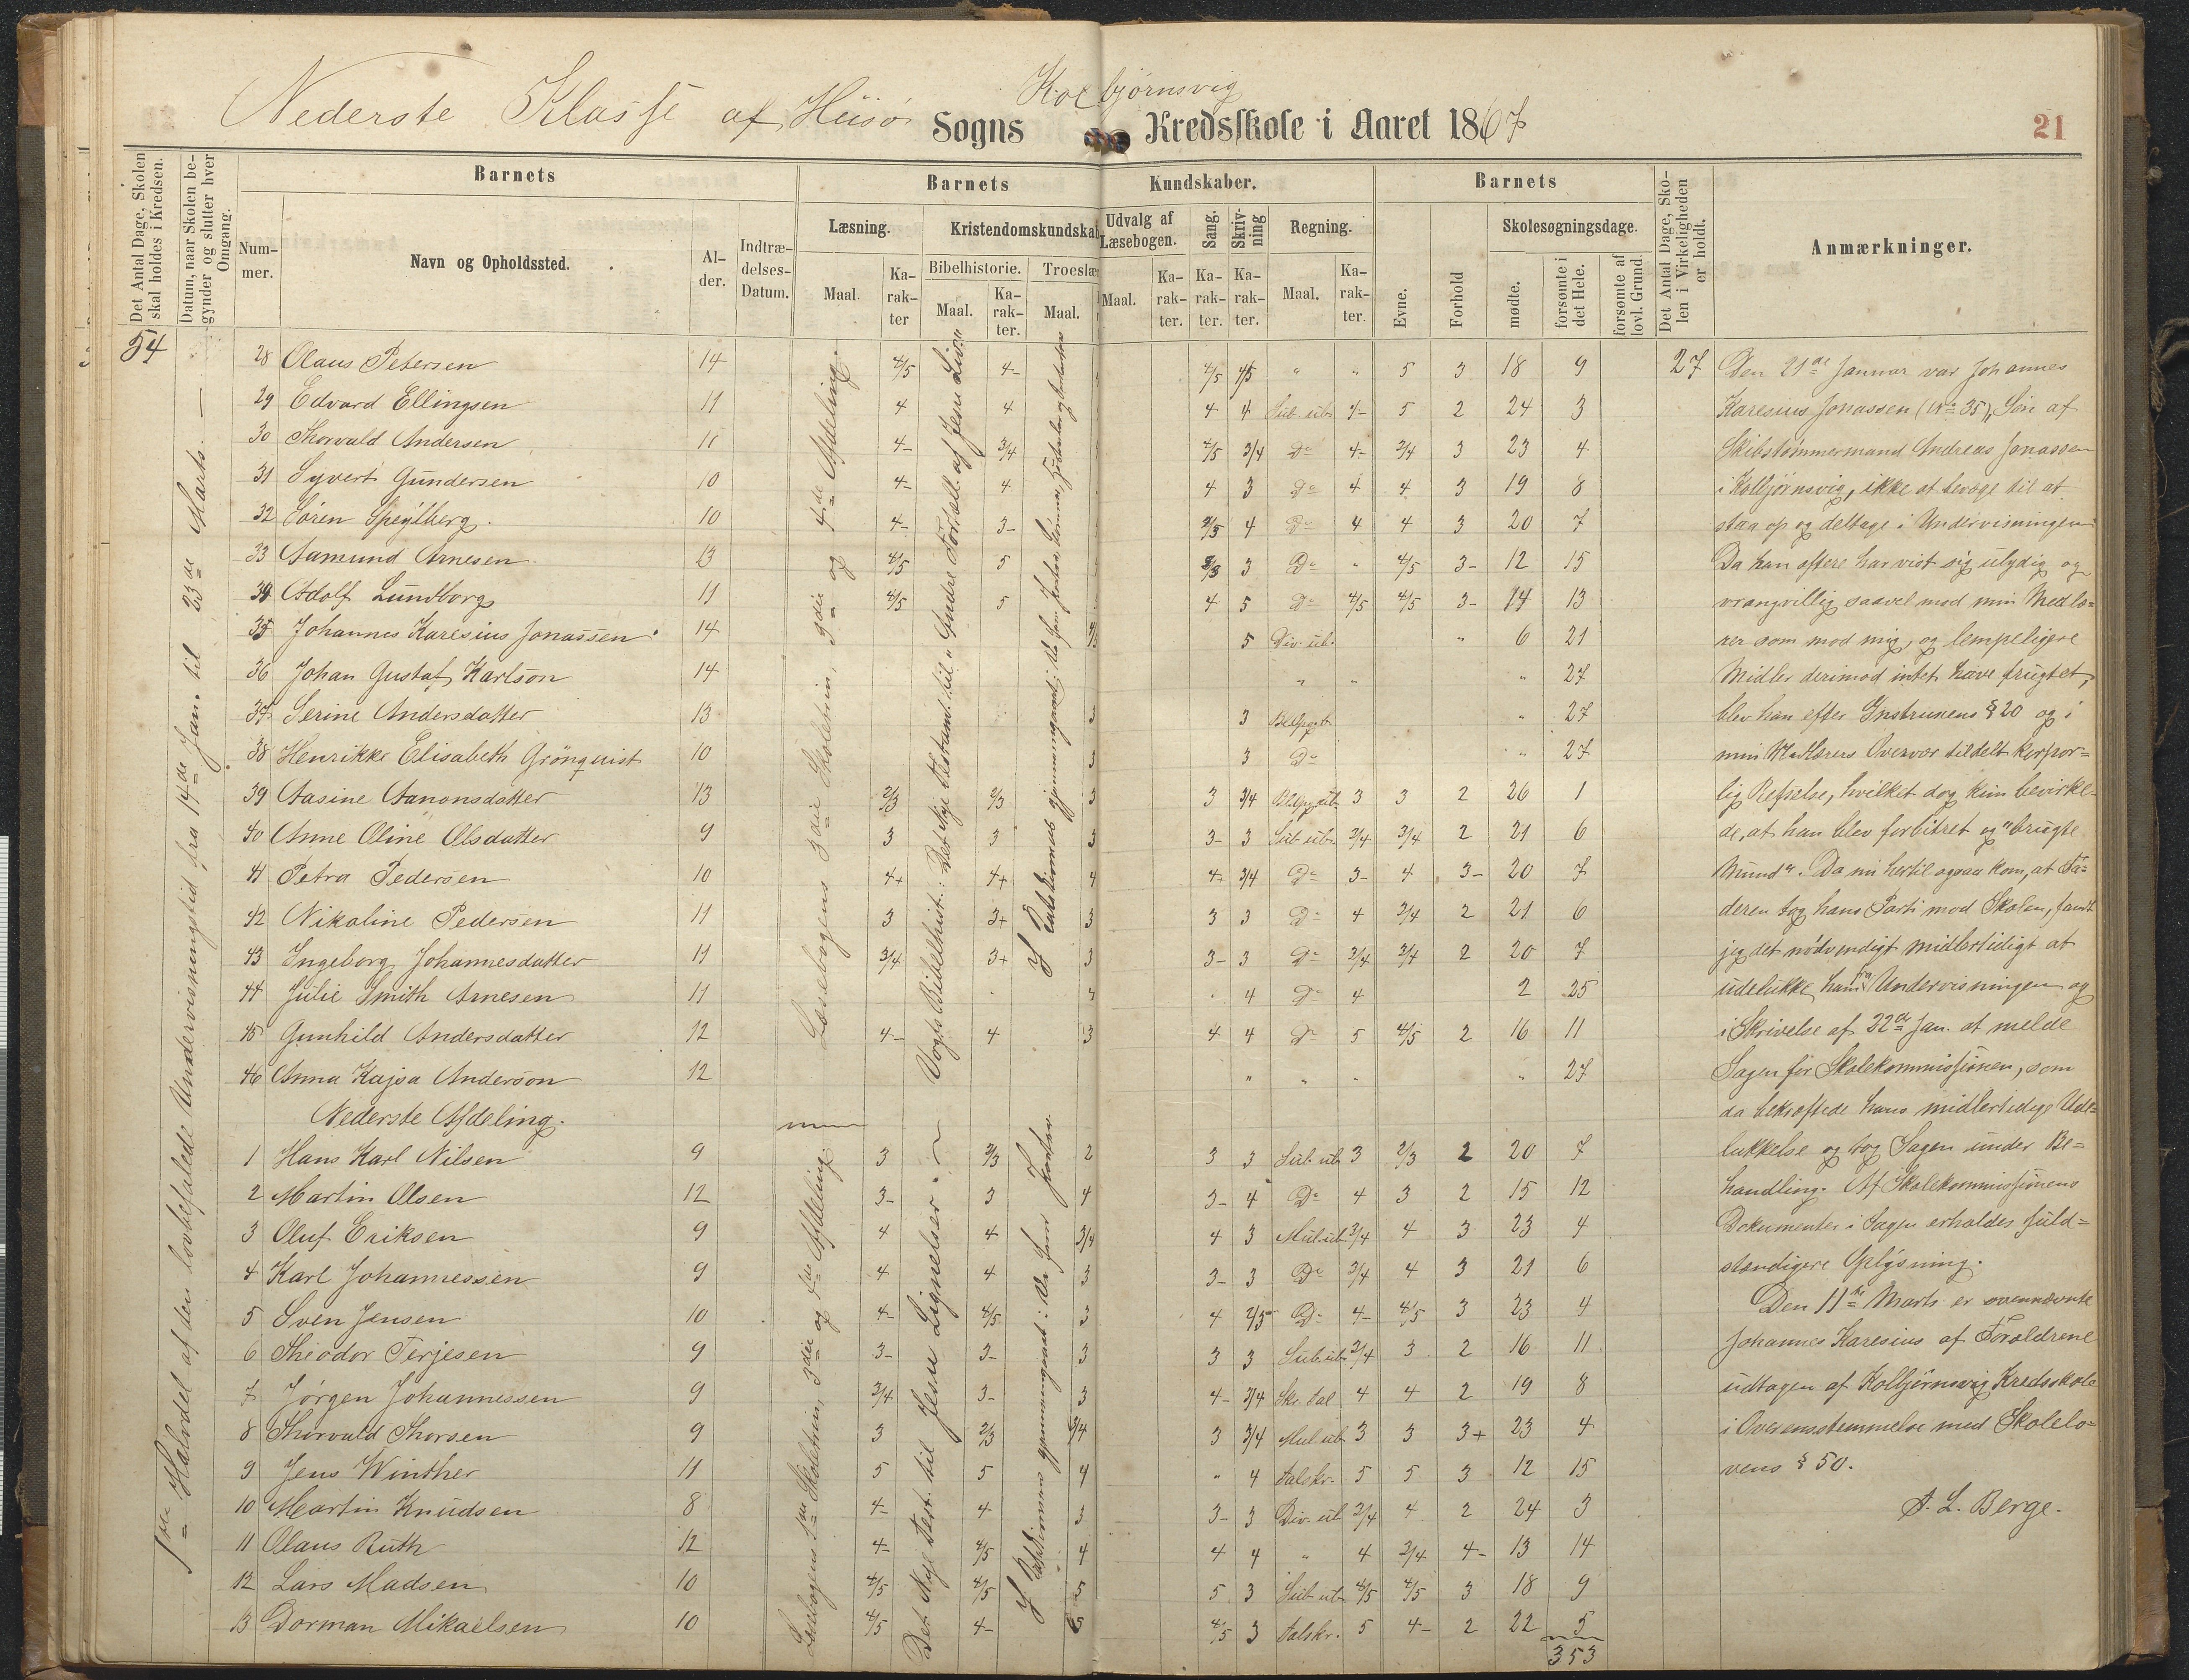 Nederste Klasse af Hüsø Sogns Kolbjørnsvig Kredsskole i Aaret 1867
21
Det Antal Dage, Skolen skal holdes i Kredsen.
Datum, naar Skolen begynder og slutter hver Omgang.
Barnets
Nummer.
Navn og Opholdssted.
Alder.
Indtrædelses-Datum.
Barnets Kundskaber.
Læsning.
Maal.
Karakter
Kristendomskundskab
Bibelhistorie.
Maal.
Karakter.
Troeslæ
Maal.
Udvalg af Læsebogen.
Maal.
Karakter.
Sang.
Karakter.
Skrivning
Karakter.
Regning.
Maal.
Karakter.
Barnets
Evne.
Forhold
Skolesøgningsdage.
mødte.
forsømte i det Hele.
forsømte af lovl. Grund.
Det Antal Dage, Skolen i Virkeligheden er holdt.
Anmærkninger.
54
1ste Halvdel af den lovbefalede Undervisningstid fra 14de Jan. til 23de Marts. —
Læsebogens 3die Skoletrin, 3die og 4de Afdeling.
Vogts Bibelhist.: Det Nye Testam. til "Andre Fortæll. af Jesu Liv."
28 Olaus Petersen 14 4/5 4- 4/5 4/5 " " 5 3 18 9 27
29 Edvard Ellingsen 11 4 4 4 4 Sub. ub. 4- 5 2 24 3
30 Thorvald Andersen 11 4- 3/4 4/5 3/4 Do 4- 3/4 3 23 4
31 Syvert Gundersen 10 4- 4 4 3 Do 4 4 3 19 8
32 Sören Speylberg. 10 4- 3- 4/5 4 Do 4 4 3 20 7
33 Aamund Arnesen 13 4/5 5 3 Do " 4/5 3- 12 15
34 Adolf Lundborg 11 4/5 5 4 5 Do 4/5 4/5 3- 14 13
35 Johannes Karesius Jonassen 14 5 Div. ub. " 6 21
36 Johan Gustaf Karlson 14 " " " 27
37 Serine Andersdatter 13 3 3 " 27
38 Henrikke Elisabeth Grönqvist 10 3 3 Do " 27
39 Aasine Aanonsdatter 13 2/3 2/3 3 3 3/4 3 3 2 26 1
40 Anne Oline Olsdatter 9 3 3 3 3- 3 Sub. ub. 3/4 3/4 2 21 6
41 Petra Pedersen 10 4+ 4+ 4 4+ 3/4 Do 3- 4 3- 20 7
42 Nikoline Pedersen 11 3 3+ 3 3 3 Do 4 3/4 2 21 6
43 Ingeborg Johannesdatter 11 3/4 3+ 3 3- 3 Do 3/4 3/4 2 20 7
44 Julie Smith Arnesen 11 4 4 Do 4 2 25
45 Gunhild Andersdatter 12 4- 4 3 4 4 Do 5 4/5 2 16 11
46 Anna Kajsa Anderson 12 " " " " 27
Nederste Afdeling.
Læsebogens 1ste Skoletrin, 3die og 4de Afdeling.
Det Nye Test. til Jesu Lignelser.
1 Hans Karl Nilsen 9 3 2/3 2 3 3 Sub. ub. 3 2/3 2 20 7
2 Martin Olsen 12 3- 3 4 3- 4 Do 4 3 2 15 12
3 Oluf Eriksen 9 4 4 3/4 4 3 Mul. ub. 3/4 4 3 23 4
4 Karl Johannessen 9 4 4 3 3- 3 Do 3/4 4 3 21 6
5 Sven Jensen 10 4- 4/5 3 4 4/5 Do 4- 4/5 3 23 4
6 Theodor Terjesen 9 3- 3- 3 3 3 Sub. ub. 3/4 3 2 16 11
7 Jørgen Johannessen 9 3/4 3- 3 4- 3/4 Skr. tal 4 4 2 19 8
8 Thorvald Thorsen 9 3 2/3 3/4 3 3/4 Mul. ub. 3 3 3+ 23 4
9 Jens Winther 11 5 5 4 " 4 talskr. 5 5 3 12 15
10 Martin Knudsen 8 4- 4 3 3- 3 Div. ub. 3/4 4 2 24 3
11 Olaus Ruth 12 4- 4/5 4 4 4 " 4 3/4 4- 13 14
12 Lars Madsen 10 4/5 4/5 5 5 3 Sub. ub. 4/5 4/5 3 18 9
13 Dorman Mikaelsen 10 4/5 4- 5 4/5 3 talskr. 5 4- 2 22 5
353
Den 21de Januar var Johannes
Karesius Jonassen (No 35), Søn af
Skibstømmermand Andreas Jonassen
i Kolbjørnsvig, ikke at bevæge til at
staa op og deltage i Undervisningen.
Da han oftere har vist sig ulydig og
vrangvillig saavel mod min Medlæ=
rer som mod mig, og lempeligere
Midler derimod intet have frugtet,
blev han efter Instruxens § 20 og i
min Medlærers Overvær tildelt korpor=
lig Refselse, hvilket dog kun bevirke=
de, at han blev forbitret og "brugte
Mund". Da nu hertil ogsaa kom, at Fa=
deren tog hans Parti mod Skolen, fandt
jeg det nødvendigt midlertidigt at
udelukke ham fra Undervisningen og
i Skrivelse af 22de Jan. at melde
Sagen for Skolekommissionen, som
da bekræftede hans midlertidige Ude=
lukkelse og tog Sagen under Be=
handling. Af Skolekommissionens
Dokumenter i Sagen erholdes fuld=
stændigere Oplysning.
Den 11te Marts er ovennævnte
Johannes Karesius af Forældrene
udtagen af Kolbjørnsvig Kredsskole
i Overensstemmelse med Skolelo=
vens § 50.
A. L. Berge.